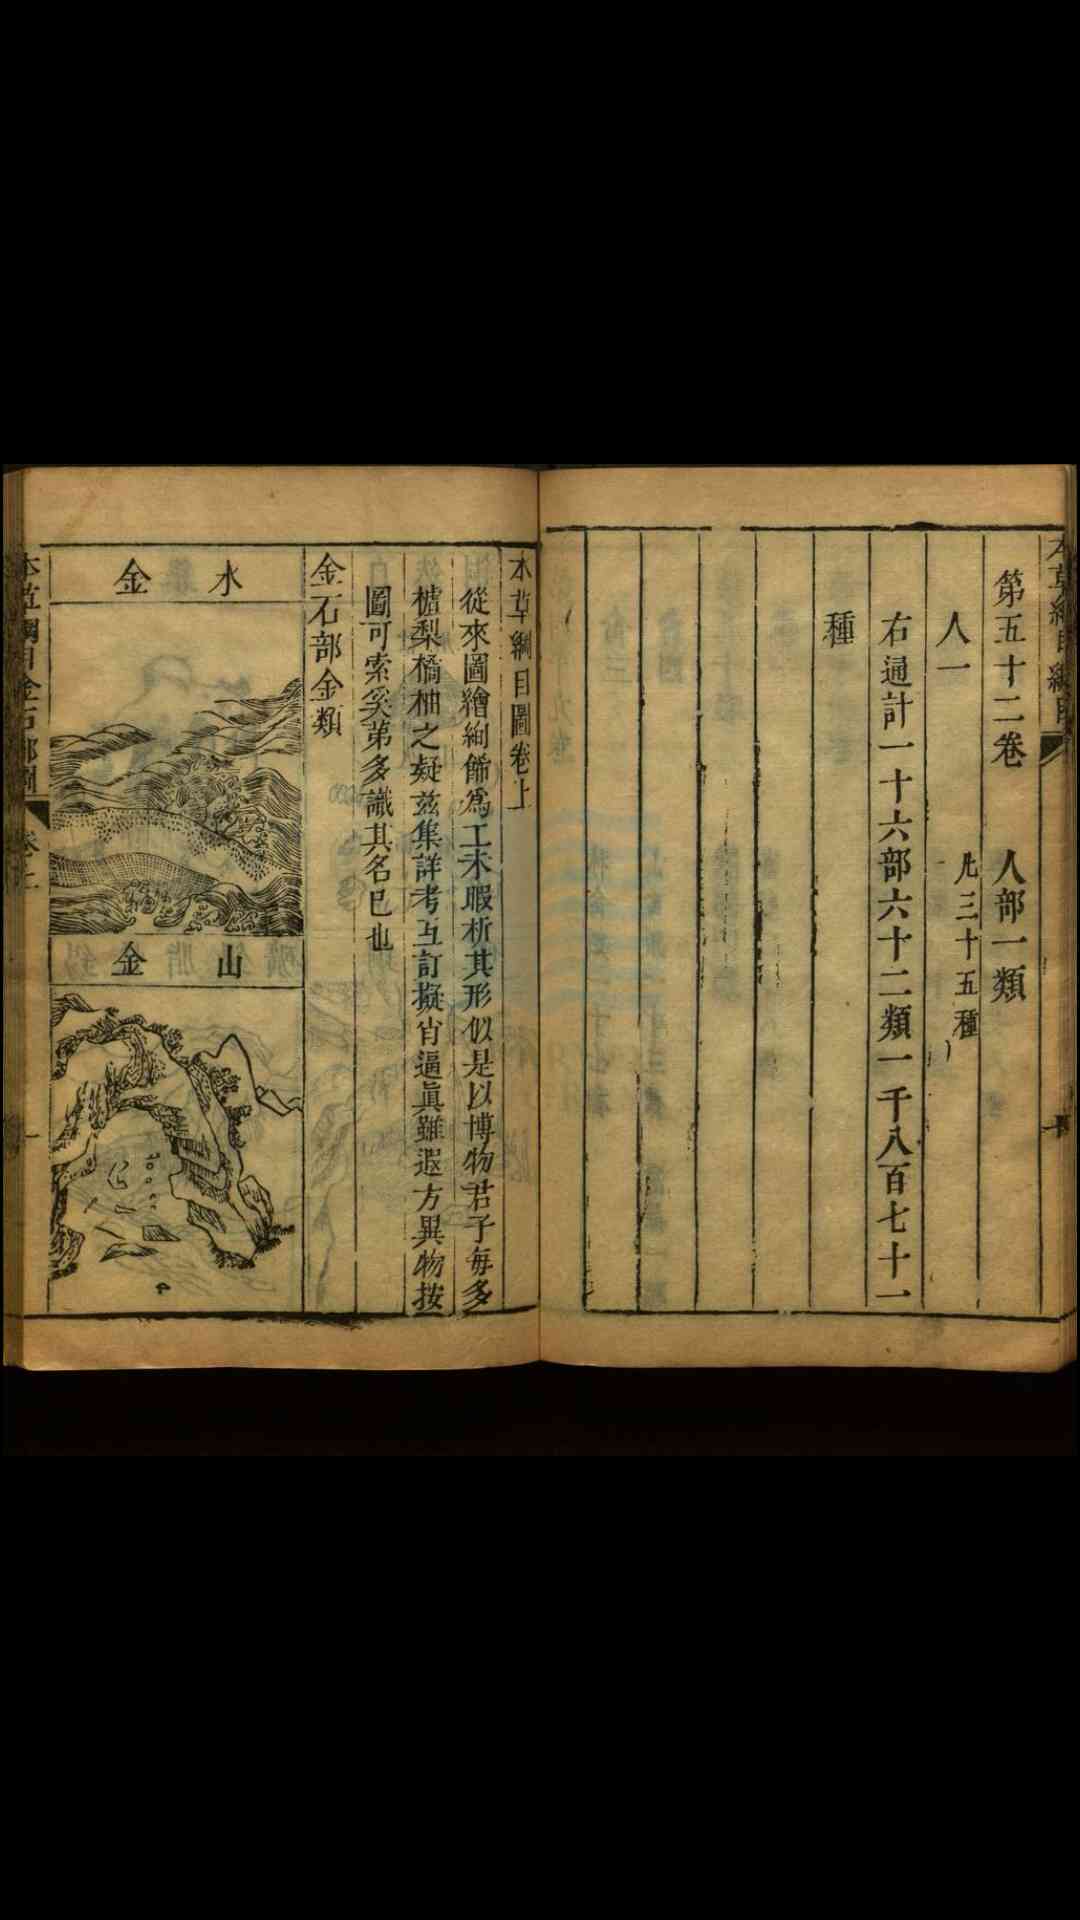 第五十二卷　人部一類
人一　凡三十五種
右通計一十六部六十二類一千八百七十一
種
本草綱目圖卷上
從來圖繪絢飾爲工未暇析其形似是以博物君子每多
樝梨橘柚之疑茲集詳考互訂擬肖逼眞雖遐方異物按
圖可索矣第多識其名已也
金石部金類
水金
山金
本草綱目金石部圖　卷之上　一